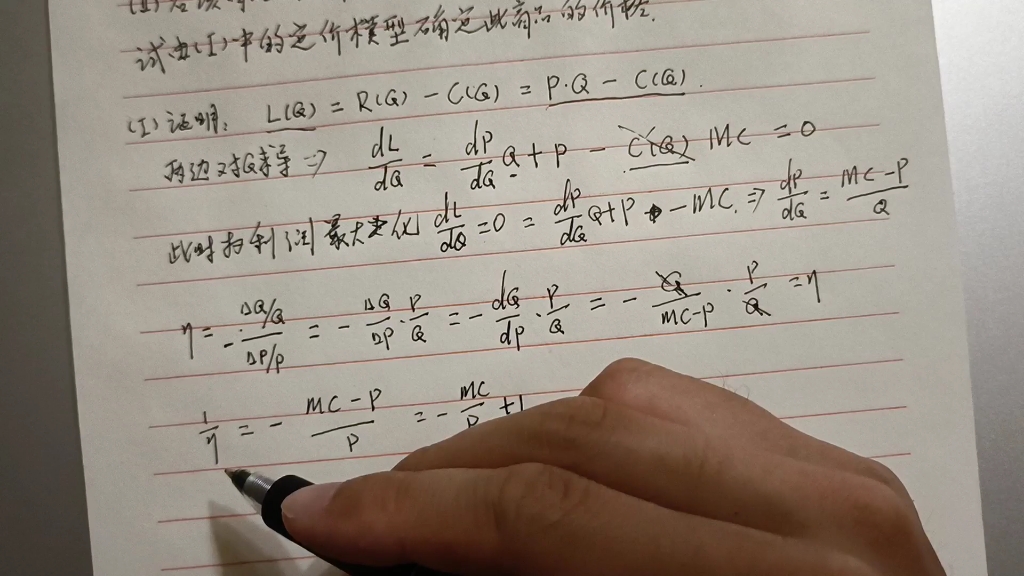 (II)
试由(I)中的定价模型确定此商品的价格.
(I) 证明: L(Q) = R(Q) - C(Q) = P·Q - C(Q).
两边对Q求导 ⇒ dL/dQ = dP/dQ Q + P - MC = 0
此时为利润最大化 dL/dQ = 0 = dP/dQ Q + P - MC. ⇒ dP/dQ = MC-P/Q
η = - ΔQ/Q / ΔP/P = - ΔQ/ΔP · P/Q = - dQ/dP · P/Q = - Q/MC-P · P/Q = η
1/η = - MC-P/P = - MC/P + 1